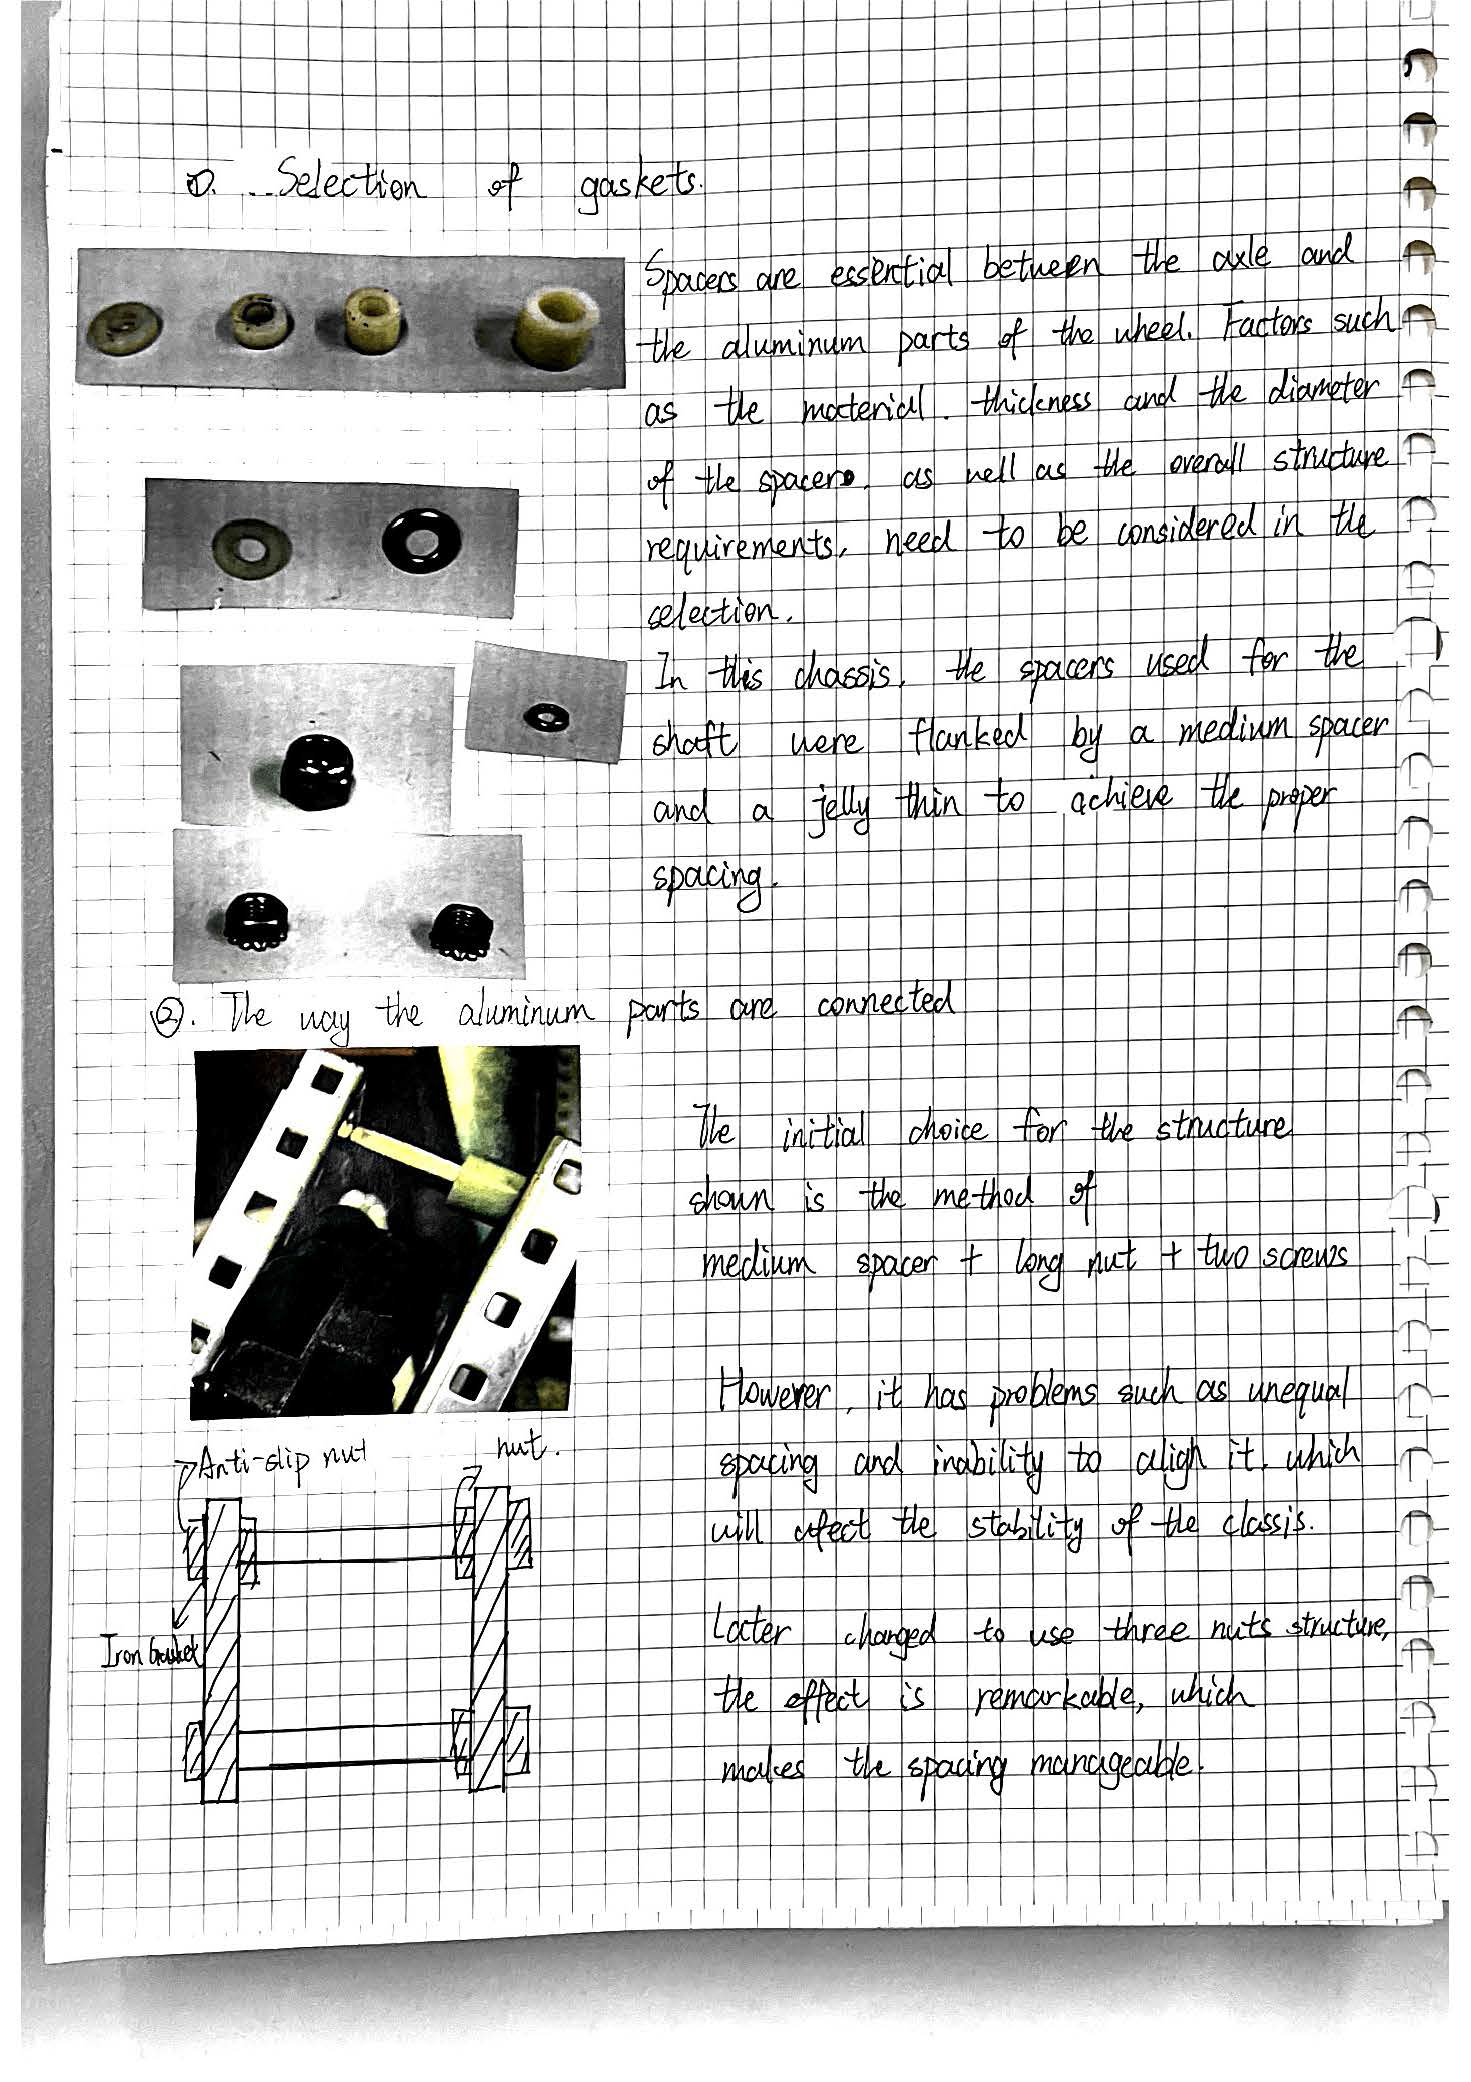 ①. Selection of gaskets.
Spacers are essential between the axle and
the aluminum parts of the wheel. Factors such
as the material. thickness and the diameter
of the spacers. as well as the overall structure
requirements, need to be considered in the
selection.
In this chassis, the spacers used for the
shaft were flanked by a medium spacer
and a jelly thin to achieve the proper
spacing.
②. The way the aluminum parts are connected
The initial choice for the structure
shown is the method of
medium spacer + long nut + two screws
However, it has problems such as unequal
spacing and inability to align it, which
will afect the stability of the classis.
Later changed to use three nuts structure,
the effect is remarkable, which
makes the spacing manageable.
Anti-slip nut
nut.
Iron Gasket